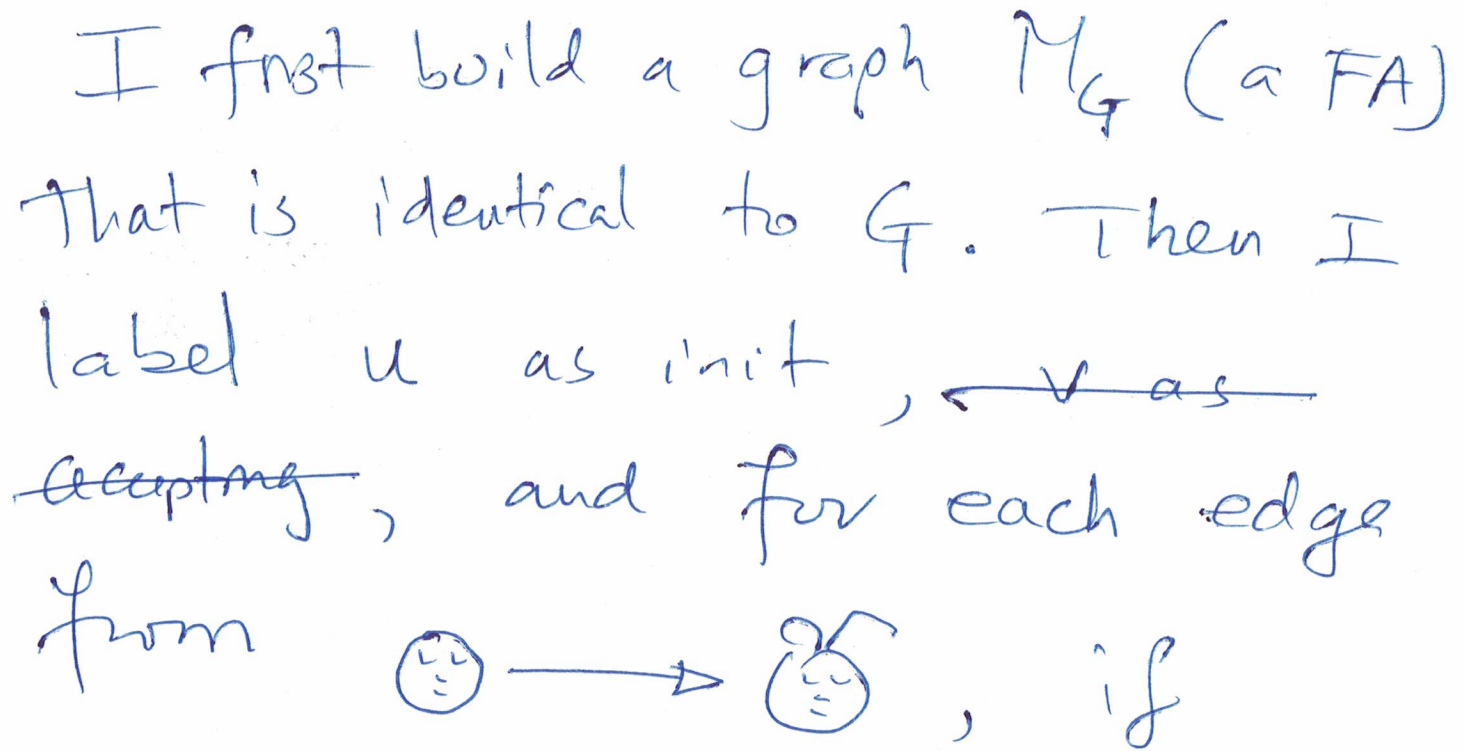 I first build a graph M_G (a FA)
that is identical to G. Then I
label u as init, ~~v as~~
~~accepting~~, and for each edge
from → , if